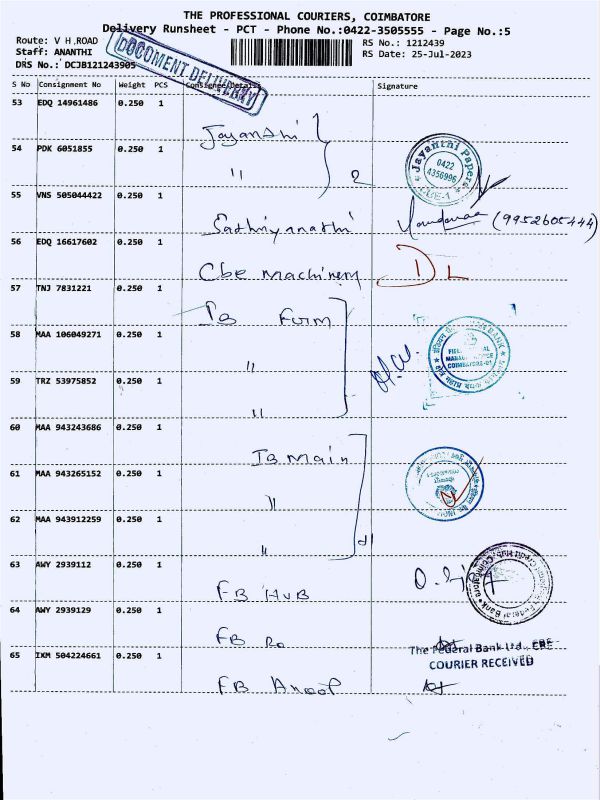 THE PROFESSIONAL COURIERS, COIMBATORE
Delivery Runsheet - PCT - Phone No.:0422-3505555 - Page No.:5
Route: V H ROAD
RS No.: 1212439
Staff: ANANTHI
RS Date: 25-Jul-2023
DRS No.: DCJB121243905
DOCUMENT DELIVERY
S No Consignment No Weight PCS Consignee Details Signature
53 EDQ 14961486 0.250 1
Jayanthi
54 PDK 6051855 0.250 1
" 2
Jayanthi Papers
0422
4356996
CBE-1
55 VNS 505044422 0.250 1
Sathiyanathi (9952605444)
56 EDQ 16617602 0.250 1
Cbe Machinery DL
57 TNJ 7831221 0.250 1
IB Firm
58 MAA 106049271 0.250 1
"
INDIAN BANK
COIMBATORE-01
59 TRZ 53975852 0.250 1
"
60 MAA 943243686 0.250 1
IB Main
61 MAA 943265152 0.250 1
"
62 MAA 943912259 0.250 1
"
63 AWY 2939112 0.250 1
FB HUB
64 AWY 2939129 0.250 1
FB Ro
The Federal Bank Ltd., CBE
COURIER RECEIVED
65 IKM 504224661 0.250 1
FB